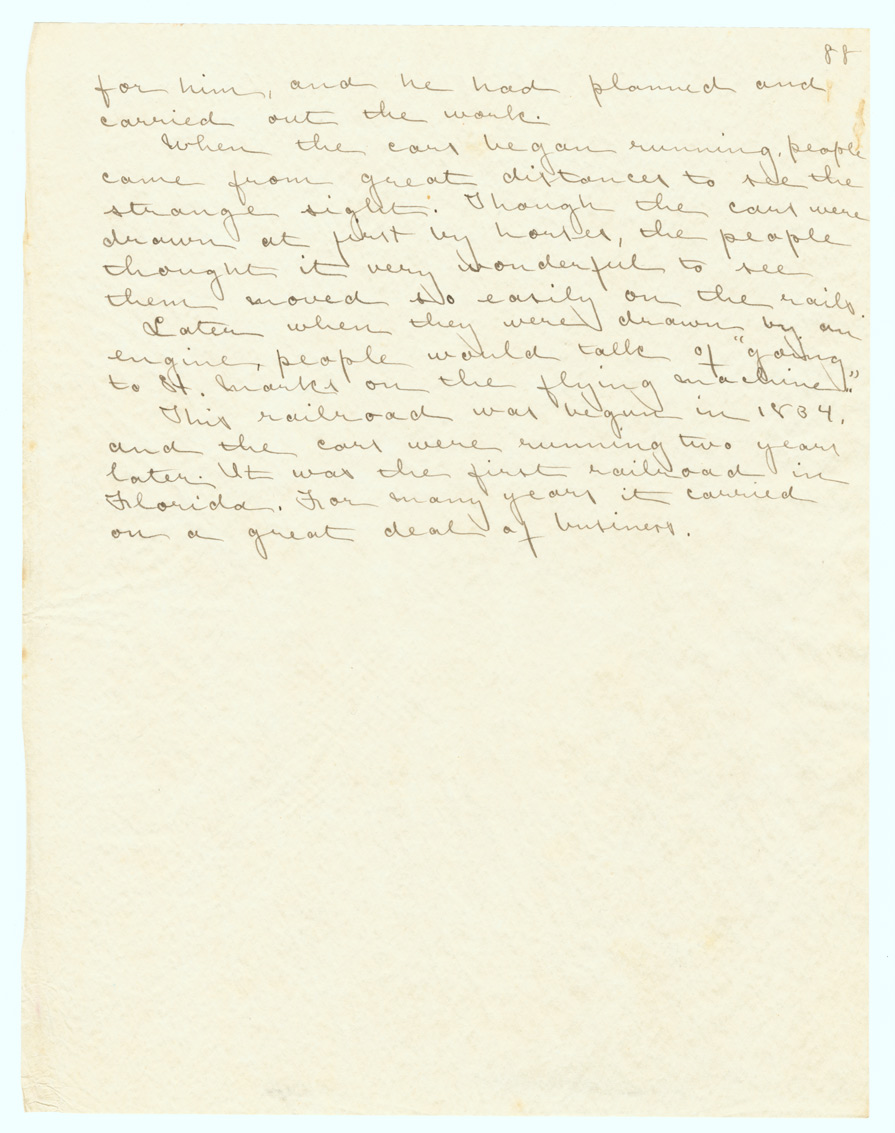 88
for him, and he had planned and
carried out the work.
When the cars began running, people
came from great distances to see the
strange sight. Though the cars were
drawn at first by horses, the people
thought it very wonderful to see
them moved so easily on the rails.
Later when they were drawn by an
engine, people would talk of "going
to St. Marks on the flying machine."
This railroad was begun in 1834,
and the cars were running two years
later. It was the first railroad in
Florida. For many years it carried
on a great deal of business.